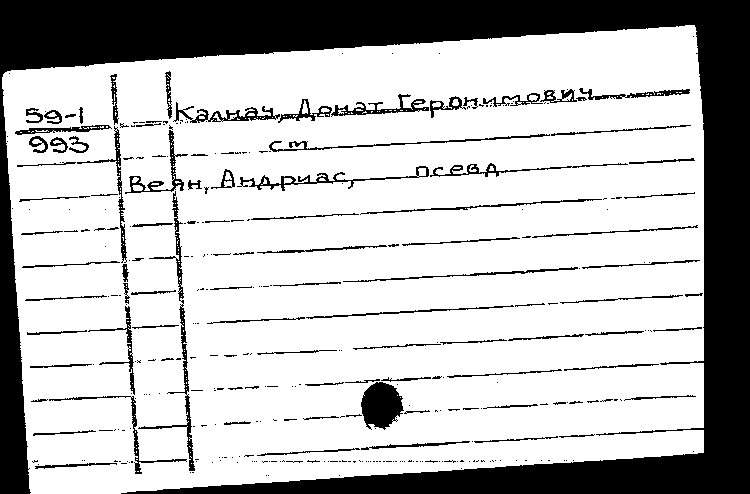 59-1 Калнач, Донат Геронимович
993 см
Веян, Андриас, псевд